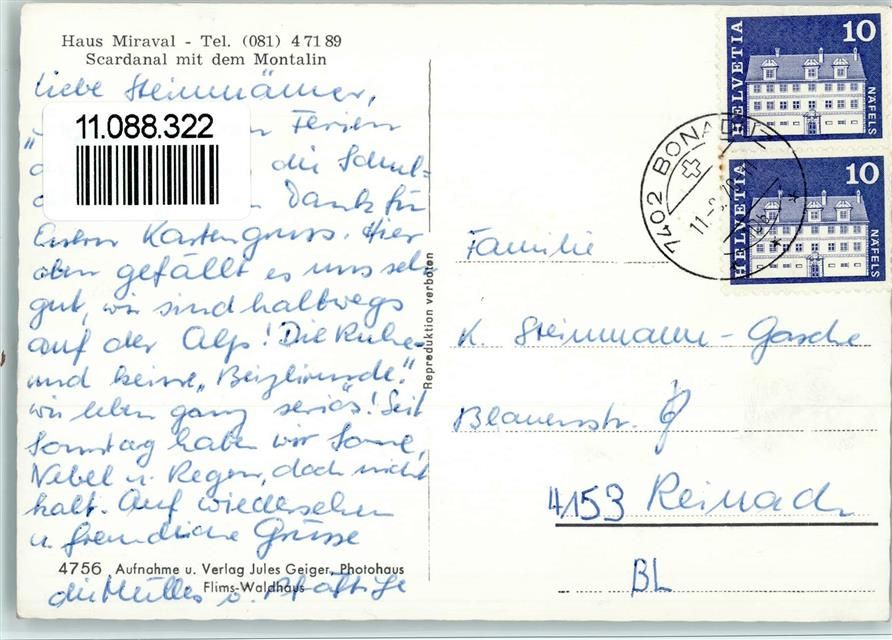 Haus Miraval - Tel. (081) 4 71 89
Scardanal mit dem Montalin
Liebe Steinmänner,
11.088.322
Ferien
die Schul-
Dank für
Euren Kartengruss. Hier
oben gefällt es uns sehr
gut, wir sind halbwegs
auf der Alp! Die Ruhe
und keine „Beizlirunde".
wir leben ganz seriös! Seit
Sonntag haben wir Sonne,
Nebel u. Regen, doch nicht
kalt. Auf wiedersehen
u. freundliche Grüsse
die
4756 Aufnahme u. Verlag Jules Geiger, Photohaus
Flims-Waldhaus
Reproduktion verboten
HELVETIA
10
NÄFELS
HELVETIA
10
NÄFELS
7402 BONADUZ
Familie
K. Steinmann-Gasche
Blauenstr.
4153 Reinach
BL